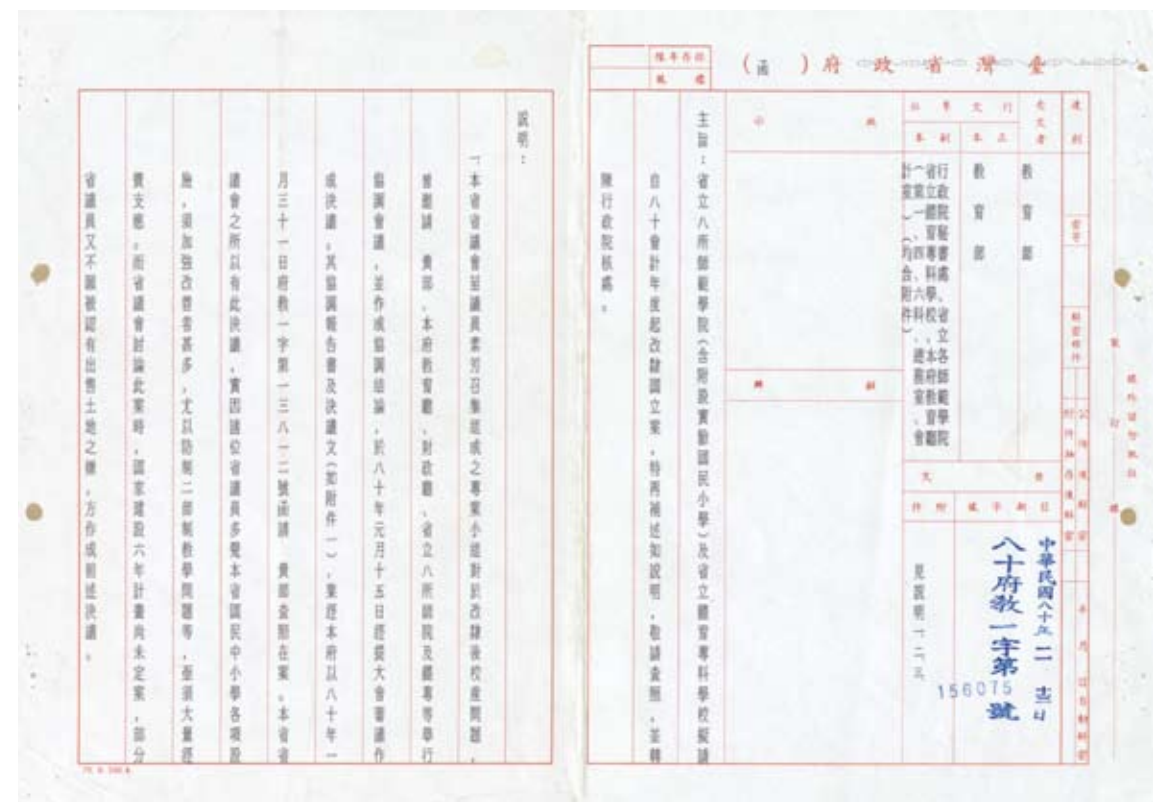 臺灣省政府（函）
檔號
保存年限
速別
密等
解密條件
受文者
教育部
行文單位
正本
教育部
副本
行政院秘書處、省立各師範學院
省立體育專科學校、本府教育廳
（第一、四、六科、總務室、會
計室）（均含附件）
批示
擬辦
發文
日期
中華民國八十年二
字號
八十府教一字第156075號
附件
見說明一、二、三
主旨：省立八所師範學院（含附設實驗國民小學）及省立體育專科學校擬請
自八十會計年度起改隸國立案，特再補述如說明，敬請查照，並轉
陳行政院核處。
說明：
一、本省省議會協議員素芬召集組成之專案小組對於改隸後校產問題，
曾邀請 貴部、本府教育廳、財政廳、省立八所師院及體專等舉行
協調會議，並作成協調結論，於八十年元月十五日經提大會審議作
成決議。其協調報告書及決議文（如附件一），業經本府以八十年一
月三十一日府教一字第一三八一二號函請 貴部查照在案。本省省
議會之所以有此決議，實因諸位省議員多覺本省國民中小學各項設
施，須加強改善者甚多，尤以防制二部制教學問題等，亟須大量經
費支應。而省議會討論此案時，國家建設六年計畫尚未定案，部分
省議員又不願被認有出售土地之嫌，方作成前述決議。